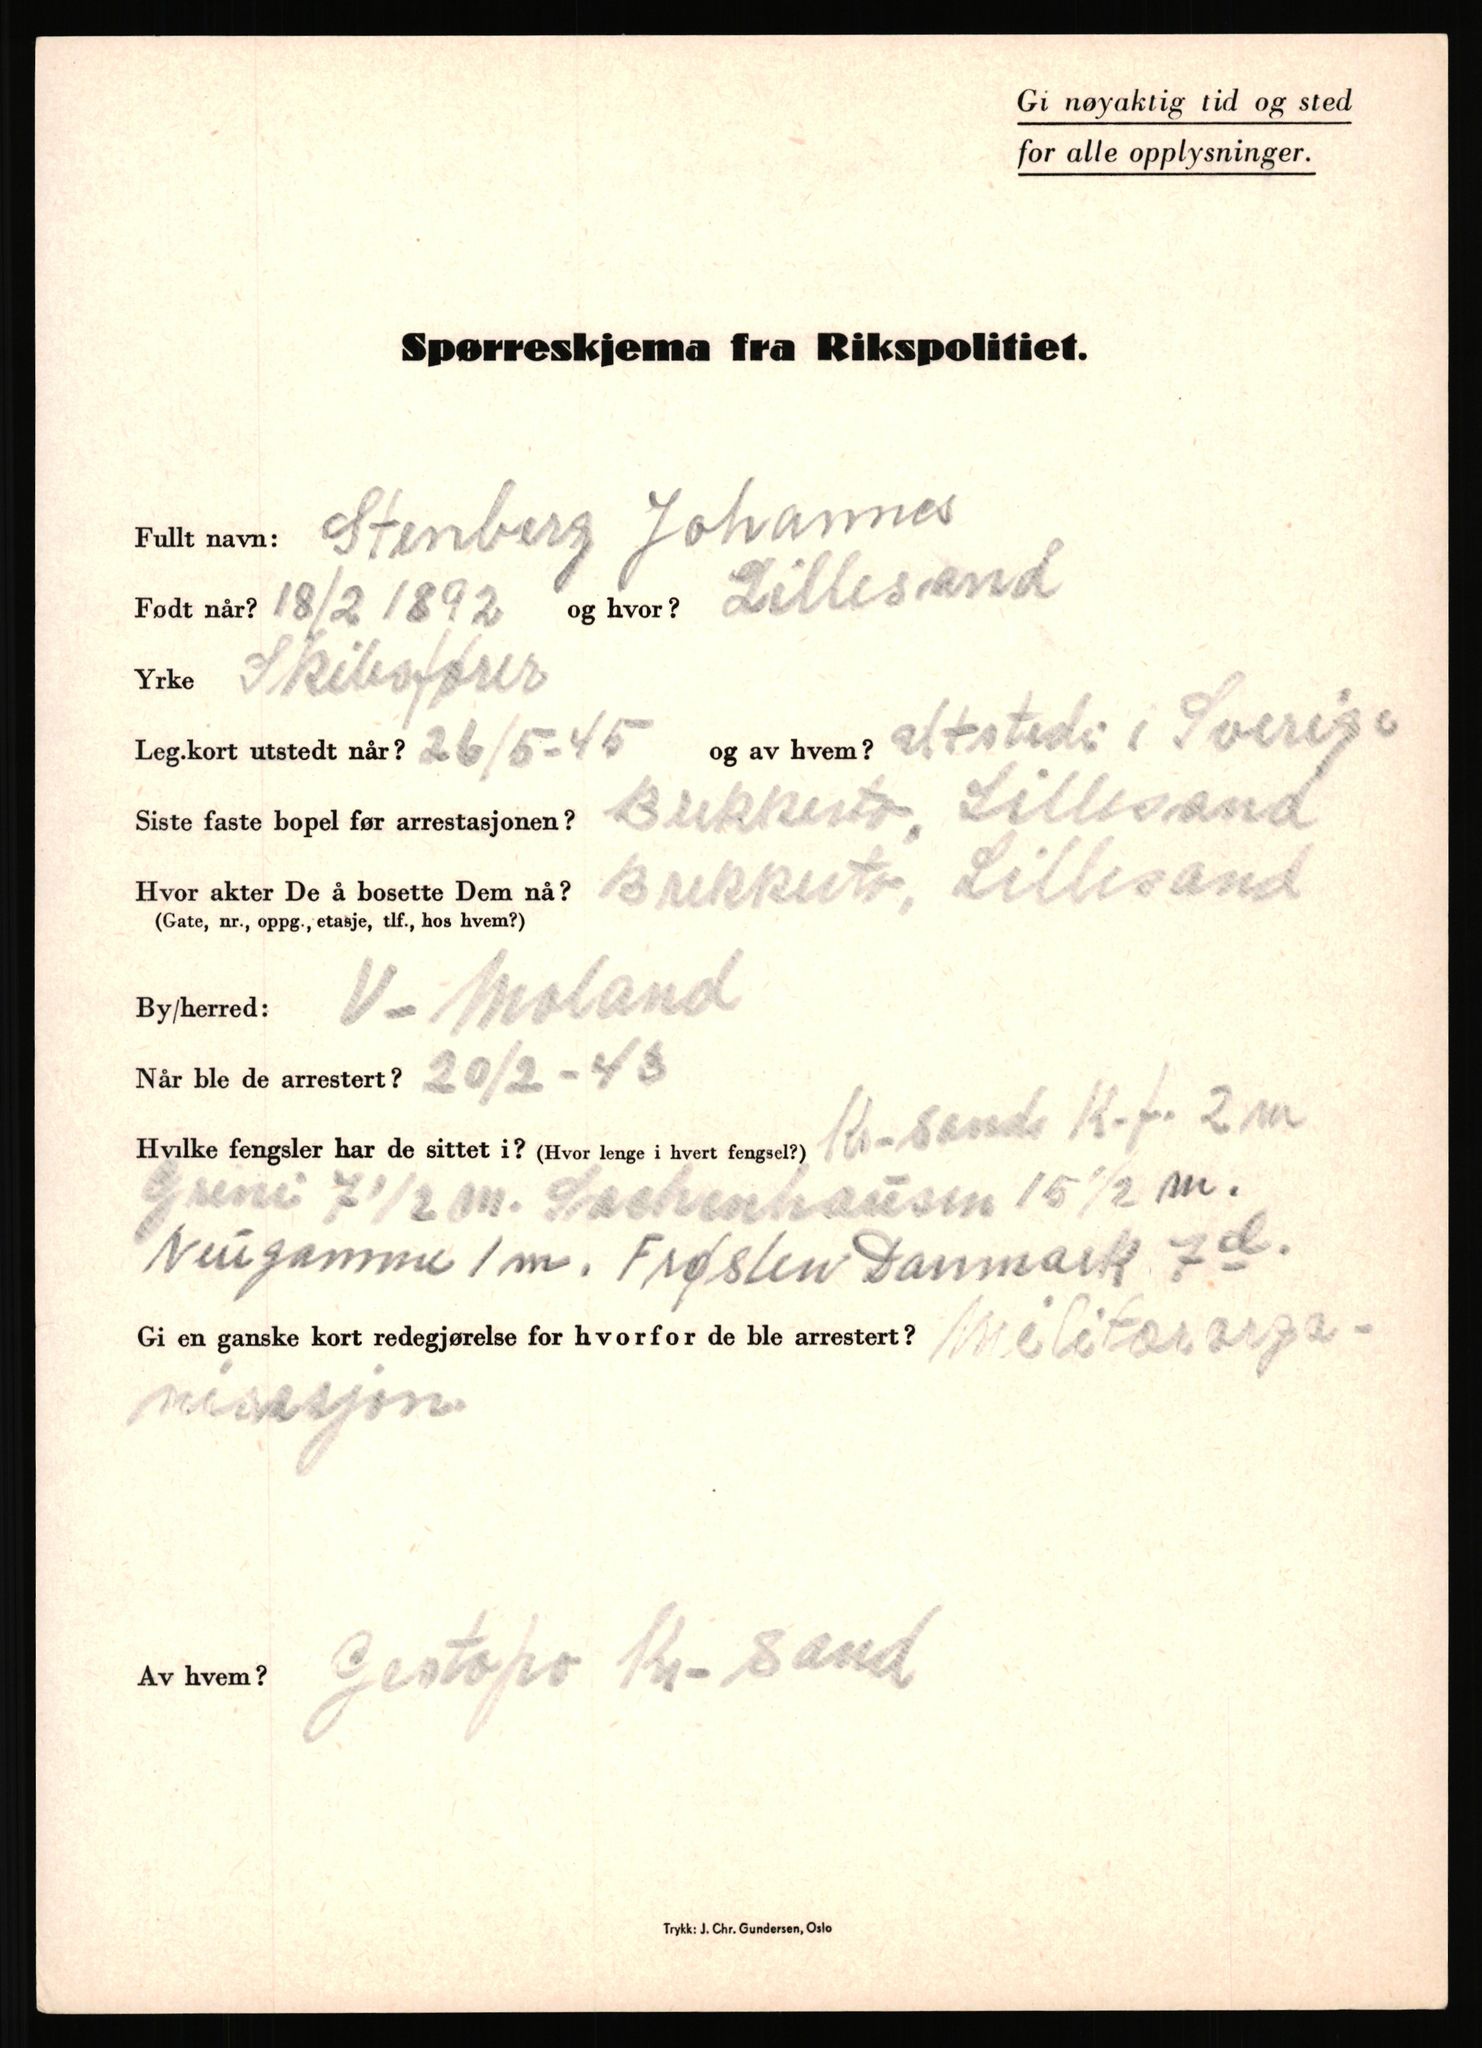 Gi nøyaktig tid og sted
for alle opplysninger.
Spørreskjema fra Rikspolitiet.
Fullt navn: Stenberg Johannes
Født når? 18/2 1892 og hvor? Lillesand
Yrke Skibsfører
Leg.kort utstedt når? 26/5-45 og av hvem? utstedt i Sverige
Siste faste bopel før arrestasjonen? Brekkestø, Lillesand
Hvor akter De å bosette Dem nå? Brekkestø, Lillesand
(Gate, nr., oppg., etasje, tlf., hos hvem?)
By/herred: V- Moland
Når ble de arrestert? 20/2-43
Hvilke fengsler har de sittet i? (Hvor lenge i hvert fengsel?) Kr-sands K-f. 2 m
Greni 7 1/2 m. Sachenhausen 15 1/2 m.
Neugamme 1 m. Frøslev Danmark 7 d.
Gi en ganske kort redegjørelse for hvorfor de ble arrestert? Militærorga-
nisasjon.
Av hvem? Gestapo Kr-sand
Trykk: J. Chr. Gundersen, Oslo